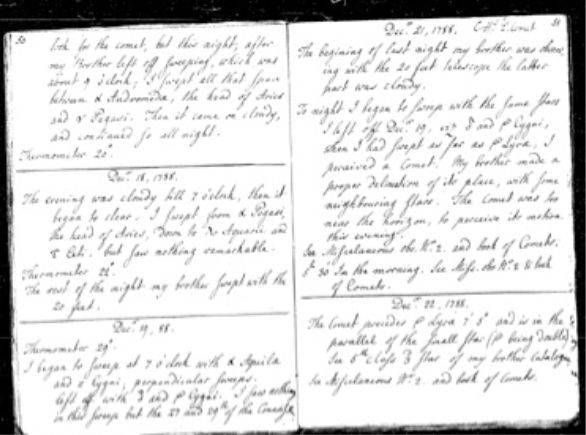 50
look for the comet, but this night, after
my Brother left off sweeping, which was
about 9 o'clock; I swept all that space
between α Andromeda, the head of Aries
and γ Pegasi. Then it came on cloudy,
and continued so all night.
Thermometer 20°.
Dec.r 18, 1788.
The evening was cloudy till 7 o'clock, then it
began to clear. I swept from α Pegasi,
the head of Aries, Down to Aquarii and
Ceti. but saw nothing remarkable.
Thermometer 22°.
The rest of the night my brother swept with the
20 feet.
Dec.r 19, 88.
Thermometer 29°.
I began to sweep at 7 o'clock with α Aquila
and Cygni, perpendicular sweeps.
left off with and Cygni. I saw nothing
in this sweep but the 27 and 29th of the Connoiss
51
Dec.r 21, 1788. Comet
The begining of last night my brother was observ
ing with the 20 feet telescope the latter
part was cloudy.
To night I began to sweep with the same Stars
I left off Dec.r 19, viz. δ and Cygni,
when I had swept as far as β Lyra, I
perceived a Comet. My brother made a
proper Delineation of its place, with some
neighbouring stars. The Comet was too
near the horizon, to perceive its motion
this evening.
See Miscelaneous obs. N.o 2. and book of Comets.
30 In the morning. See Misc. obs N.o 2 & book
of Comets.
Dec.r 22, 1788.
The Comet precedes β Lyra 7' 5" and is in the
parallel of the small star (β being double)
See 5th Class 3 Star of my brother Catalogue
See Miscelaneous N.o 2. and book of Comets.